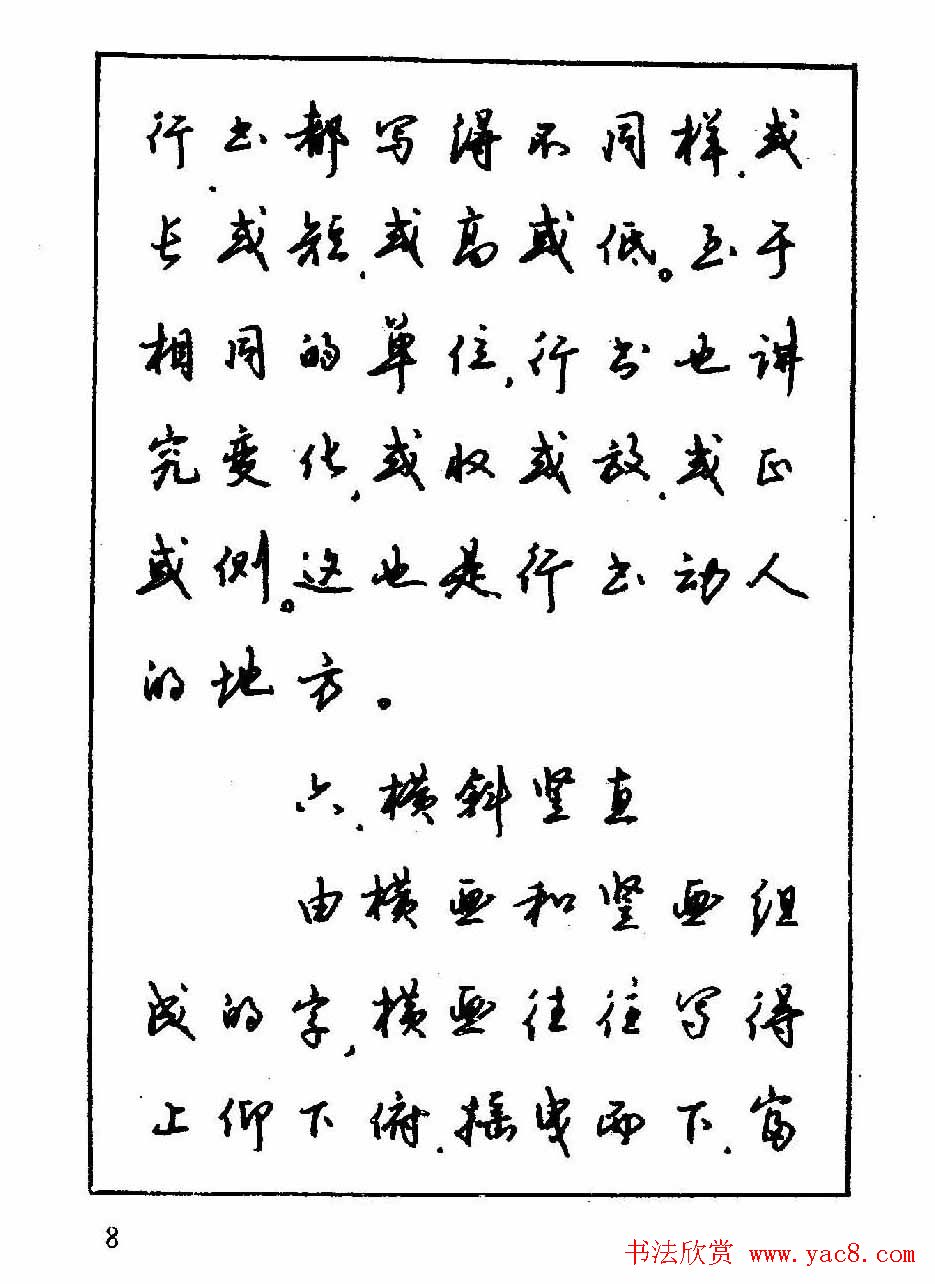 行书，都写得不同样，或
长或短，或高或低。至于
相同的单位，行书也讲
究变化，或收或放，或正
或侧。这也是行书动人
的地方。
六、横斜竖直
由横画和竖画组
成的字，横画往往写得
上仰下俯，摇曳而下，富
8
书法欣赏 www.yac8.com